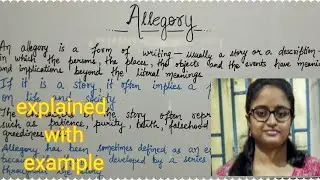 Allegory
An allegory is a form of writing — usually a story or a description —
in which the persons, the places, the objects and the events have meanin
and implications beyond the literal meanings.
If it is a story, it often implies a
explained
The story often repr
such as patience, purity, truth, falsehood
with
greediness
Allegory has been sometimes defined as an e
example
developed by a series
throughout the story